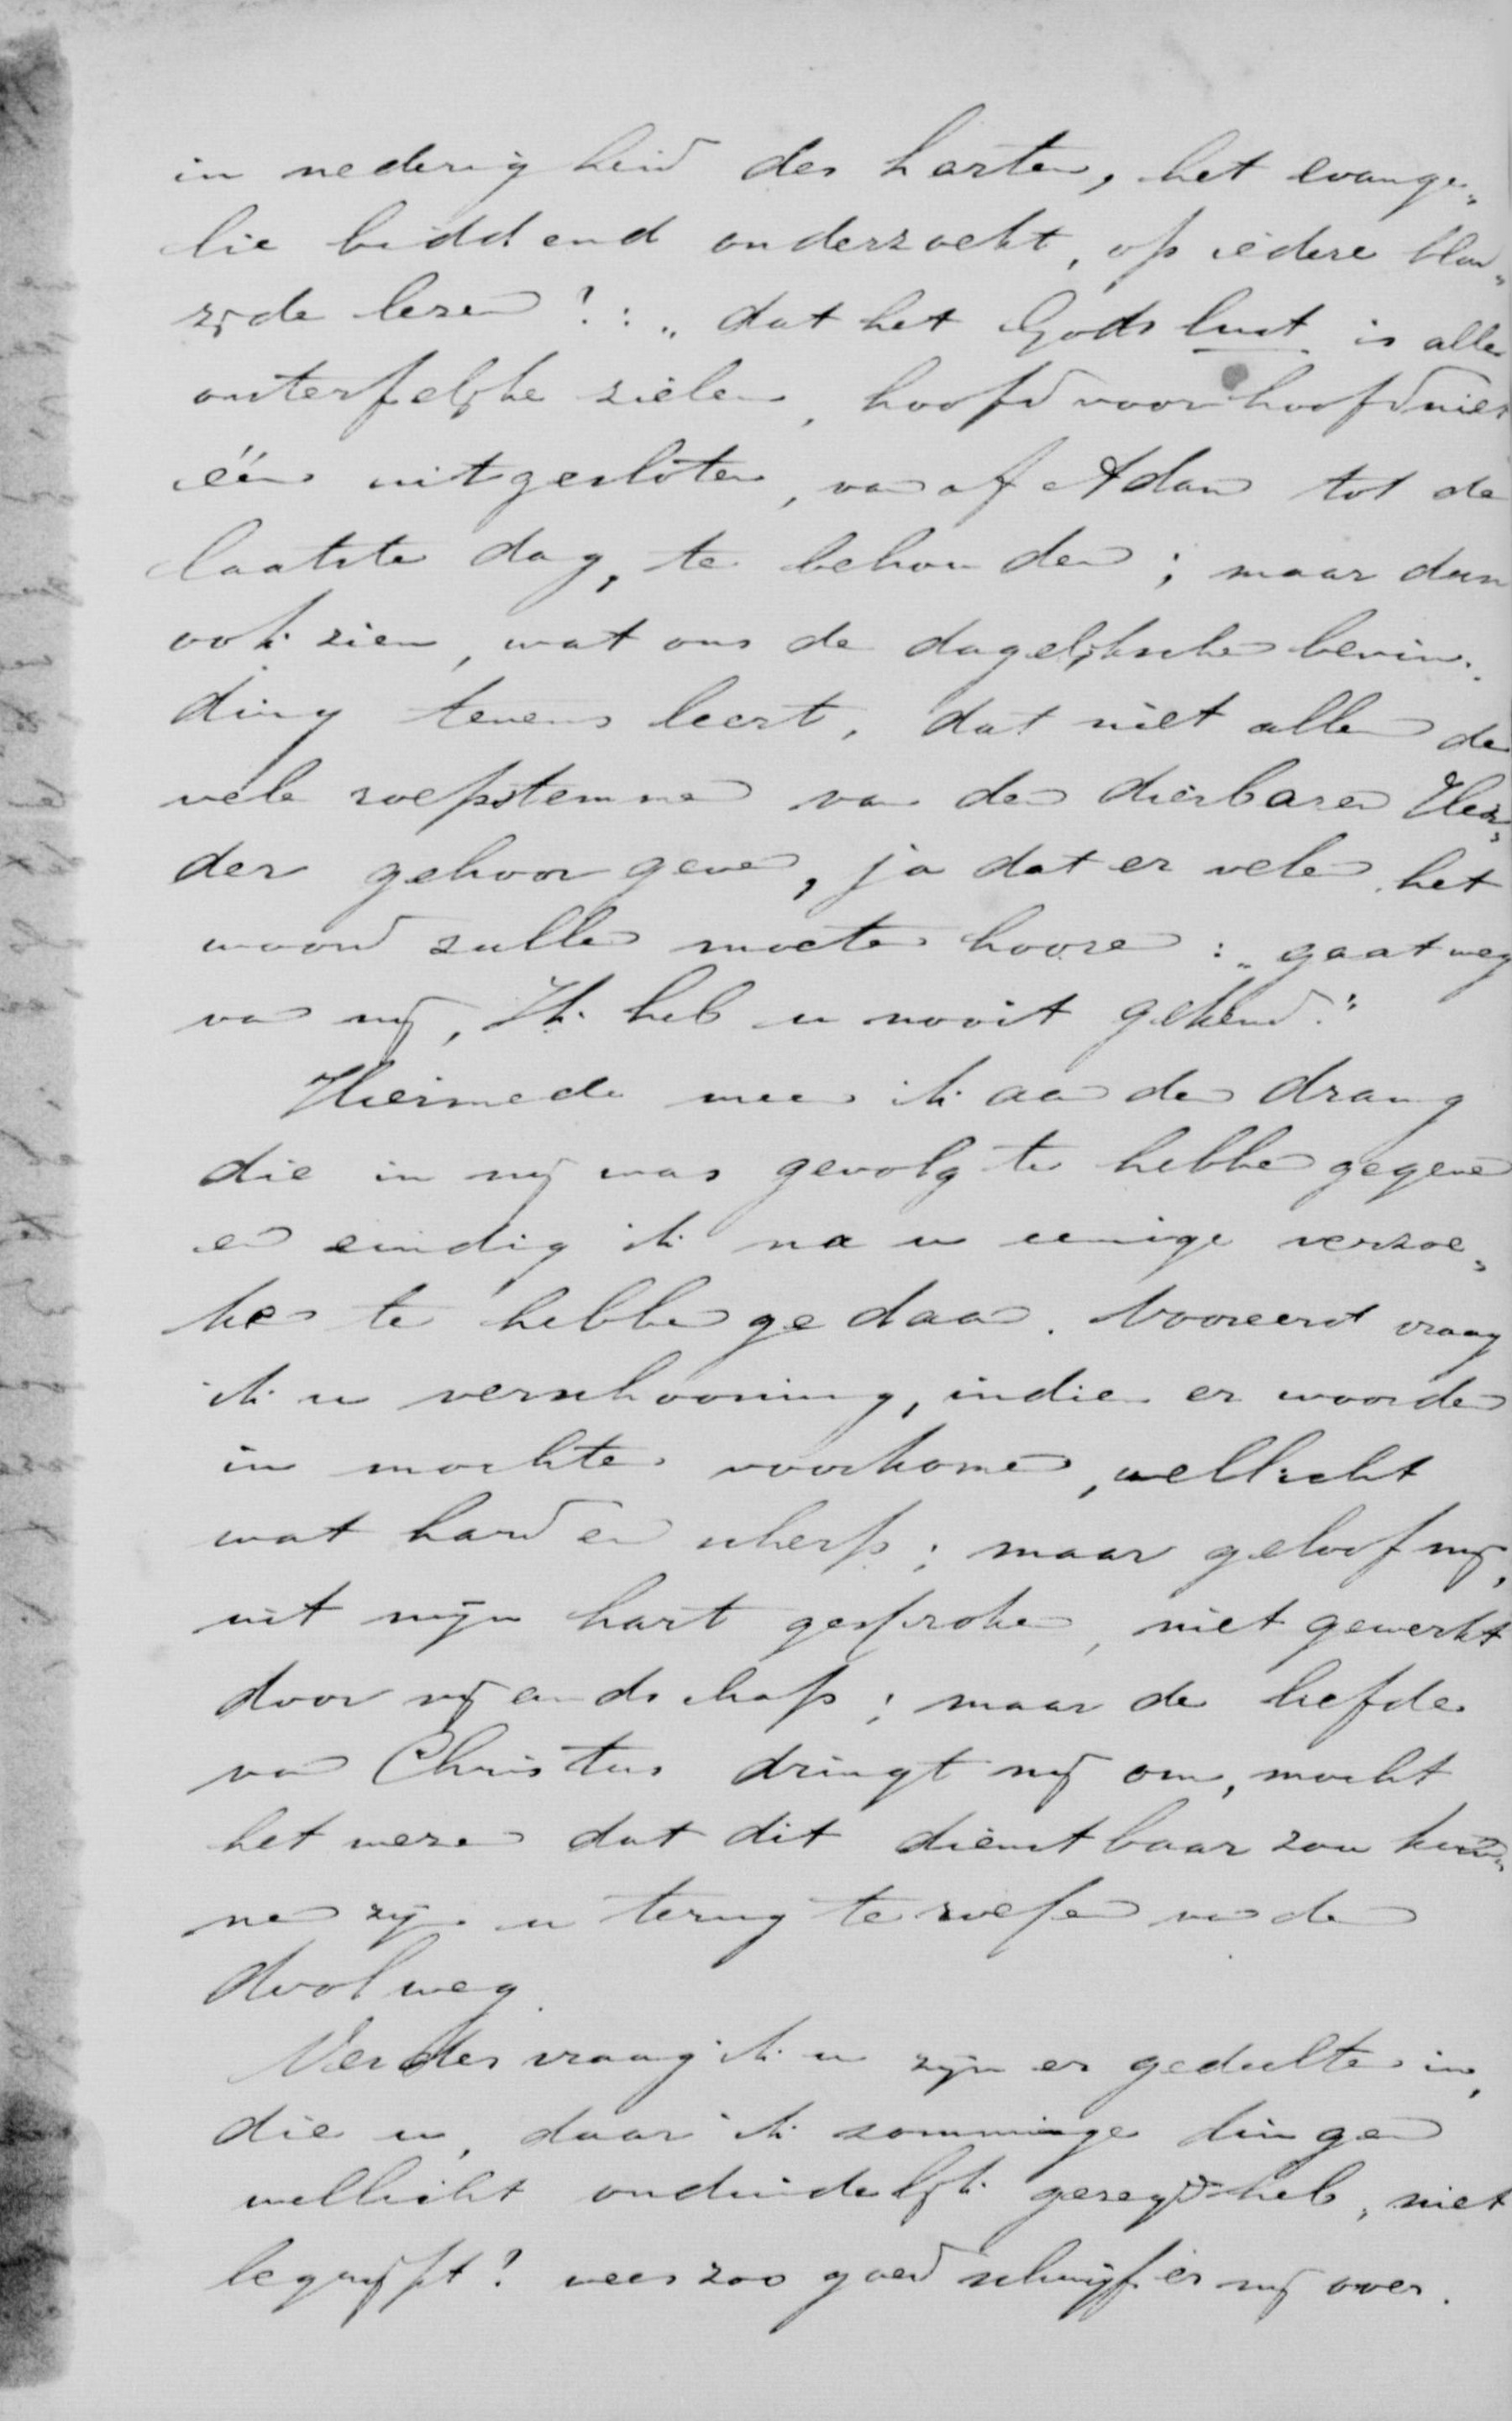 in nederigheid des harten, het evange„
lie biddend onderzoekt, op iedere blad„
zijde lezen?: „dat het Gods lust is alle
onsterfelijke zielen, hoofd voor hoofd niet
één uitgesloten, van af Adam tot de
laatste dag, te behouden; maar dan
ook zien, wat ons de dagelijksche bevin„
ding tevens leert, dat niet allen de
vele roepstemmen van den dierbaren Her„
der gehoor geven, ja dat er velen het
woord zullen moeten hooren: „gaat weg
van mij, Ik heb u nooit gekend."
Hiermede meen ik aan den drang
die in mij was gevolg te hebben gegeven
en eindig ik na u eenige verzoe„
ken te hebben gedaan. Vooreerst vraag
ik u verschooning, indien er woorden
in mochten voorkomen, wellicht
wat hard en scherp; maar geloof mij,
uit mijn hart gesproken, niet gewerkt
door vijandschap; maar de liefde
van Christus dringt mij om, mocht
het wezen dat dit dienstbaar zou kun„
nen zijn u terug te roepen van den
doolweg.
Verder vraag ik u zijn er gedeelten in,
die u, daar ik sommige dingen
wellicht onduidelijk gezegd heb, niet
begrijpt? wees zoo goed schrijf er mij over.